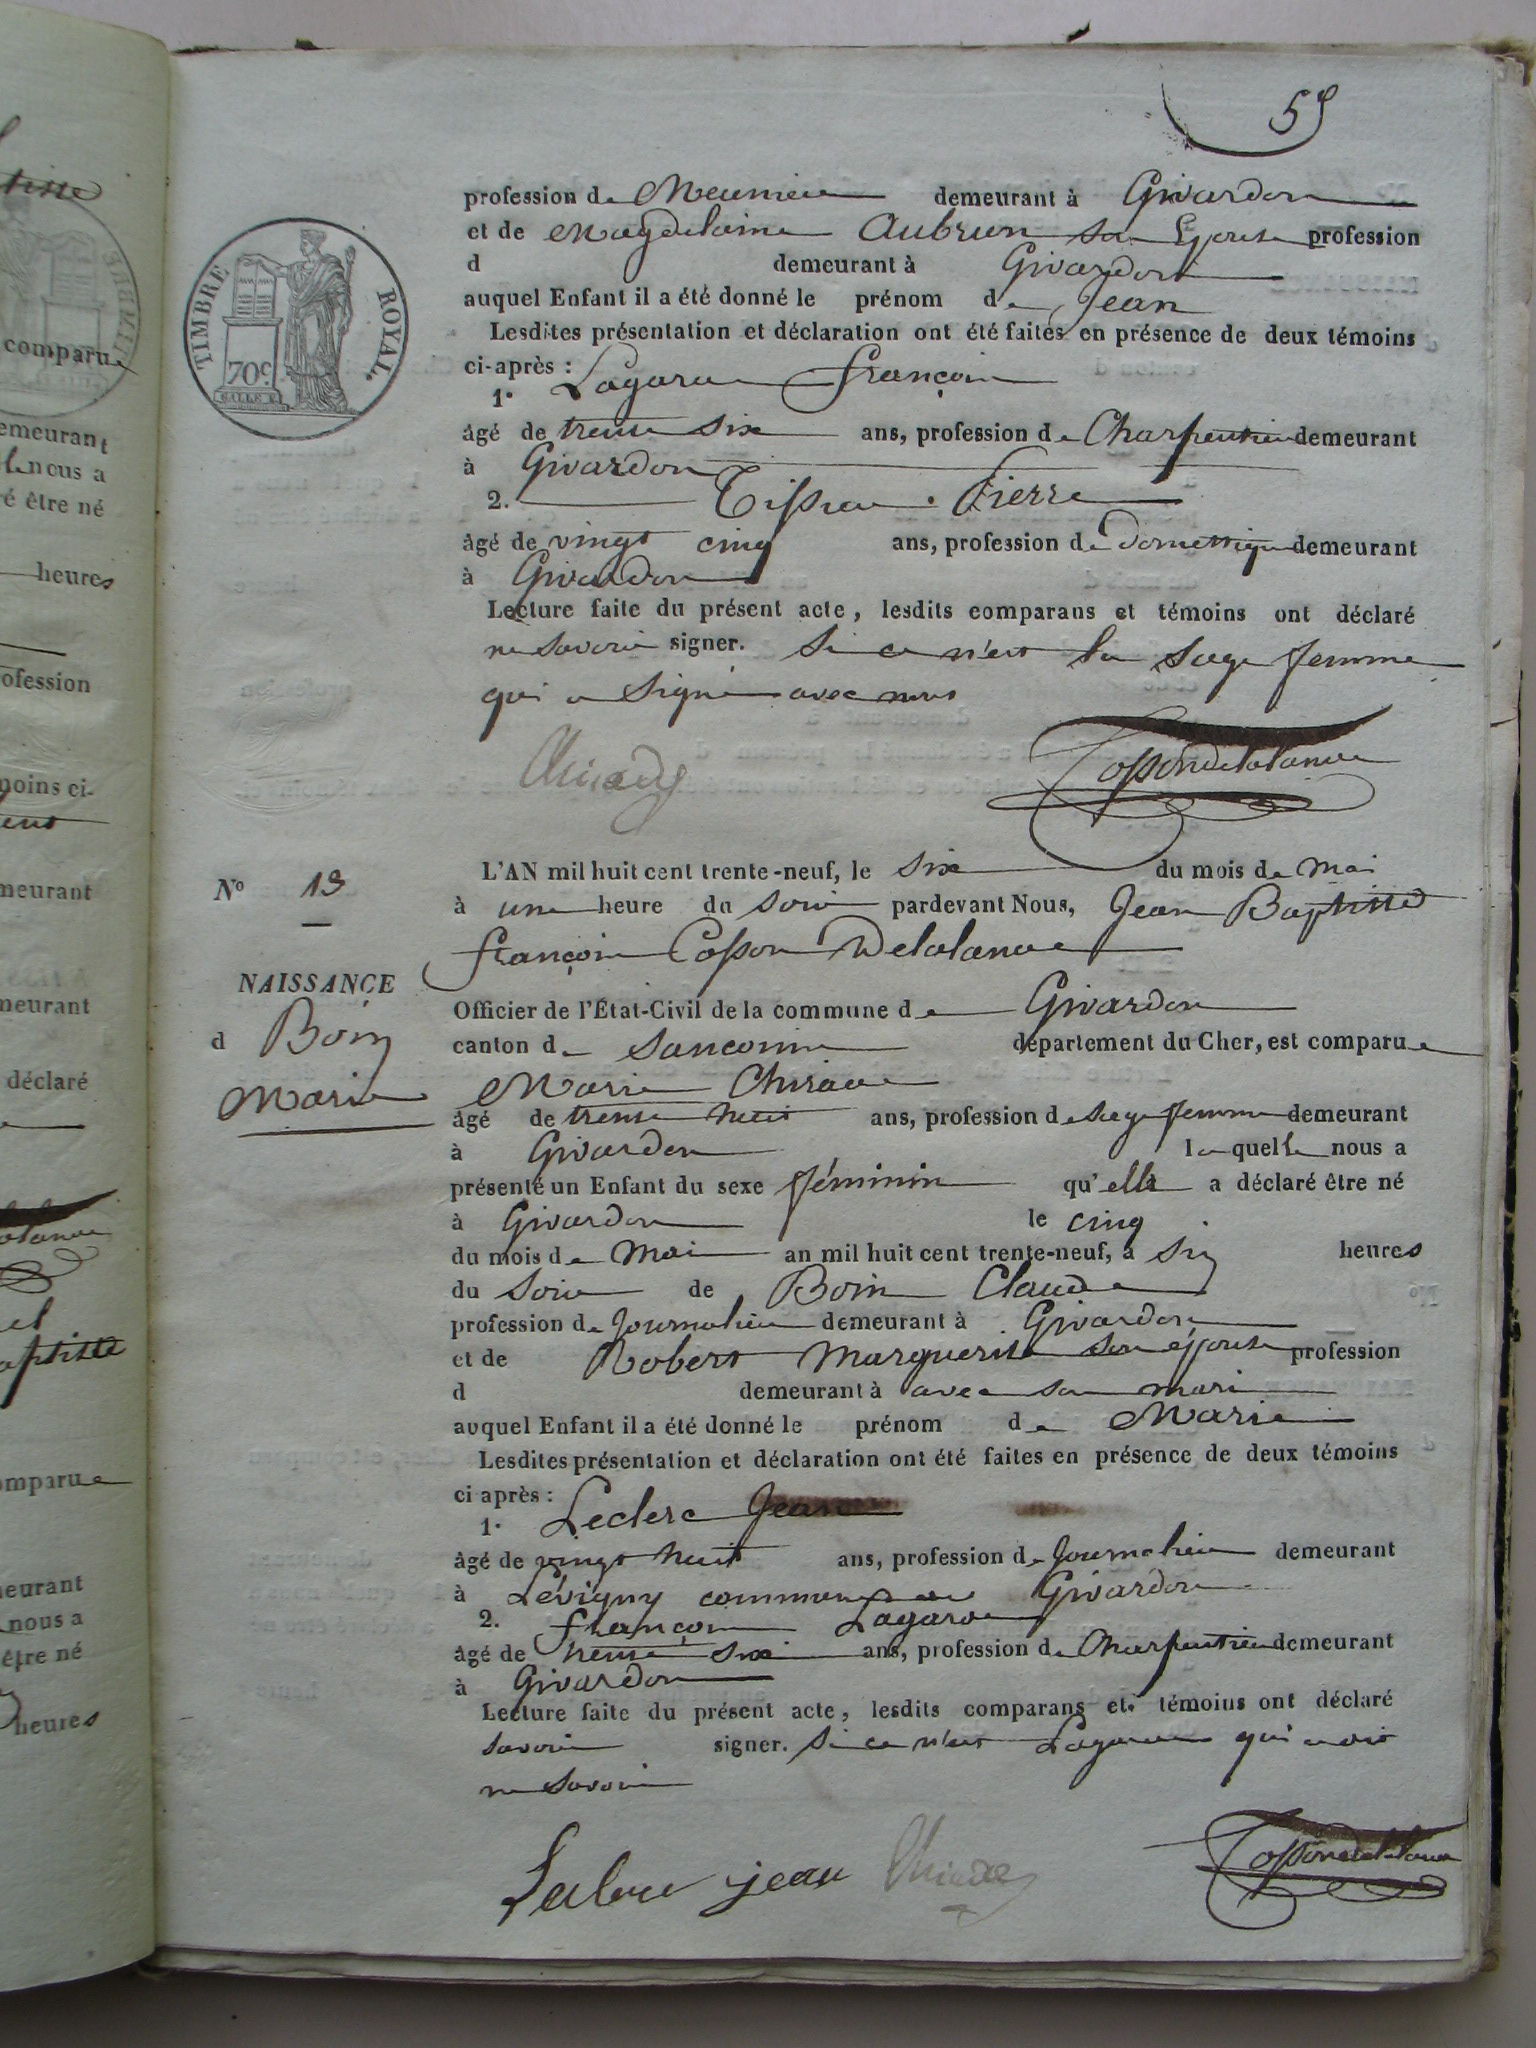 59
profession de Meunier demeurant à Givardon
et de Magdelaine Aubrun son Epouse profession
d demeurant à Givardon
auquel Enfant il a été donné le prénom de Jean
Lesdites présentation et déclaration ont été faites en présence de deux témoins
ci-après :
1° Lagarde françois
âgé de trente six ans, profession de Charpentier demeurant
à Givardon
2. Pierre
âgé de vingt cinq ans, profession de domestique demeurant
à Givardon
Lecture faite du présent acte, lesdits comparans et témoins ont déclaré
ne savoir signer. Si ce n'est la sage femme
qui a signé avec nous
Cossondelalande
TIMBRE ROYAL.
70c.
N° 19
NAISSANCE
d Boin
Marie
L'AN mil huit cent trente-neuf, le six du mois de mai
à une heure du soir pardevant Nous, Jean Baptiste
françois Cosson Delalande
Officier de l'État-Civil de la commune de Givardon
canton de Sancoins département du Cher, est comparue
Marie Chirade
âgé de trente huit ans, profession de sage femme demeurant
à Givardon laquelle nous a
présenté un Enfant du sexe féminin qu'elle a déclaré être né
à Givardon le cinq
du mois de Mai an mil huit cent trente-neuf, à six heures
du soir de Boin Claude
profession de Journalier demeurant à Givardon
et de Robert Marguerite son épouse profession
d demeurant à avec son mari
auquel Enfant il a été donné le prénom de Marie
Lesdites présentation et déclaration ont été faites en présence de deux témoins
ci après :
1° Leclerc Jean
âgé de vingt huit ans, profession de Journalier demeurant
à Lévigny commune de Givardon
2. françois Lagarde
âgé de trente six ans, profession de Charpentier demeurant
à Givardon
Lecture faite du présent acte, lesdits comparans et témoins ont déclaré
savoir signer. Si ce n'est Lagarde qui a dit
ne savoir
jean
Cossondelalande